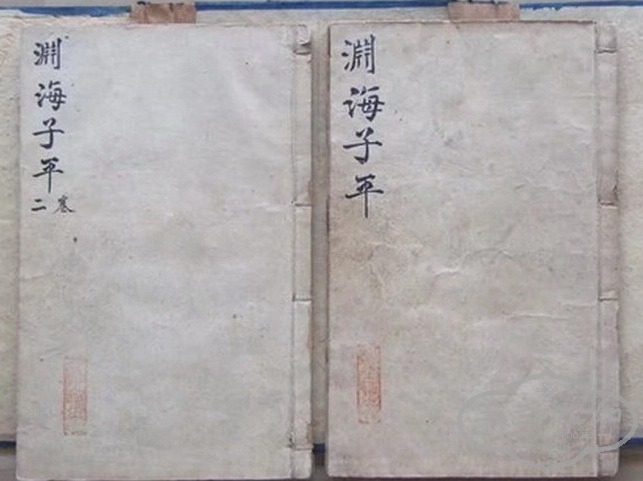 淵海子平
淵海子平
二卷